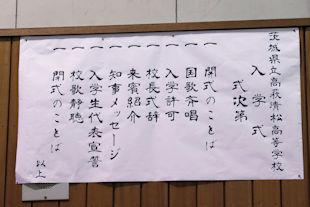 茨城県立高萩清松高等学校
入学式
式次第
一 開式のことば
一 国歌斉唱
一 入学許可
一 校長式辞
一 来賓紹介
一 知事メッセージ
一 入学生代表宣誓
一 校歌静聴
一 閉式のことば
以上